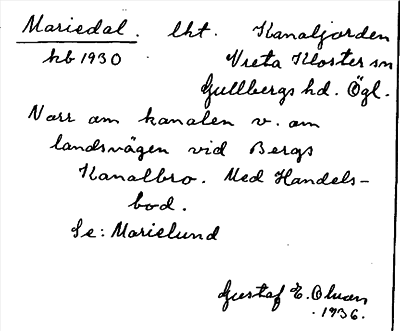 Mariedal. lht. Kanaljorden
hb 1930 Vreta Kloster sn
Gullbergs hd. Ögl.
Norr om kanalen v. om
landsvägen vid Bergs
Kanalbro. Med Handels-
bod.
Se: Marielund
Gustaf E. Olson
1936.